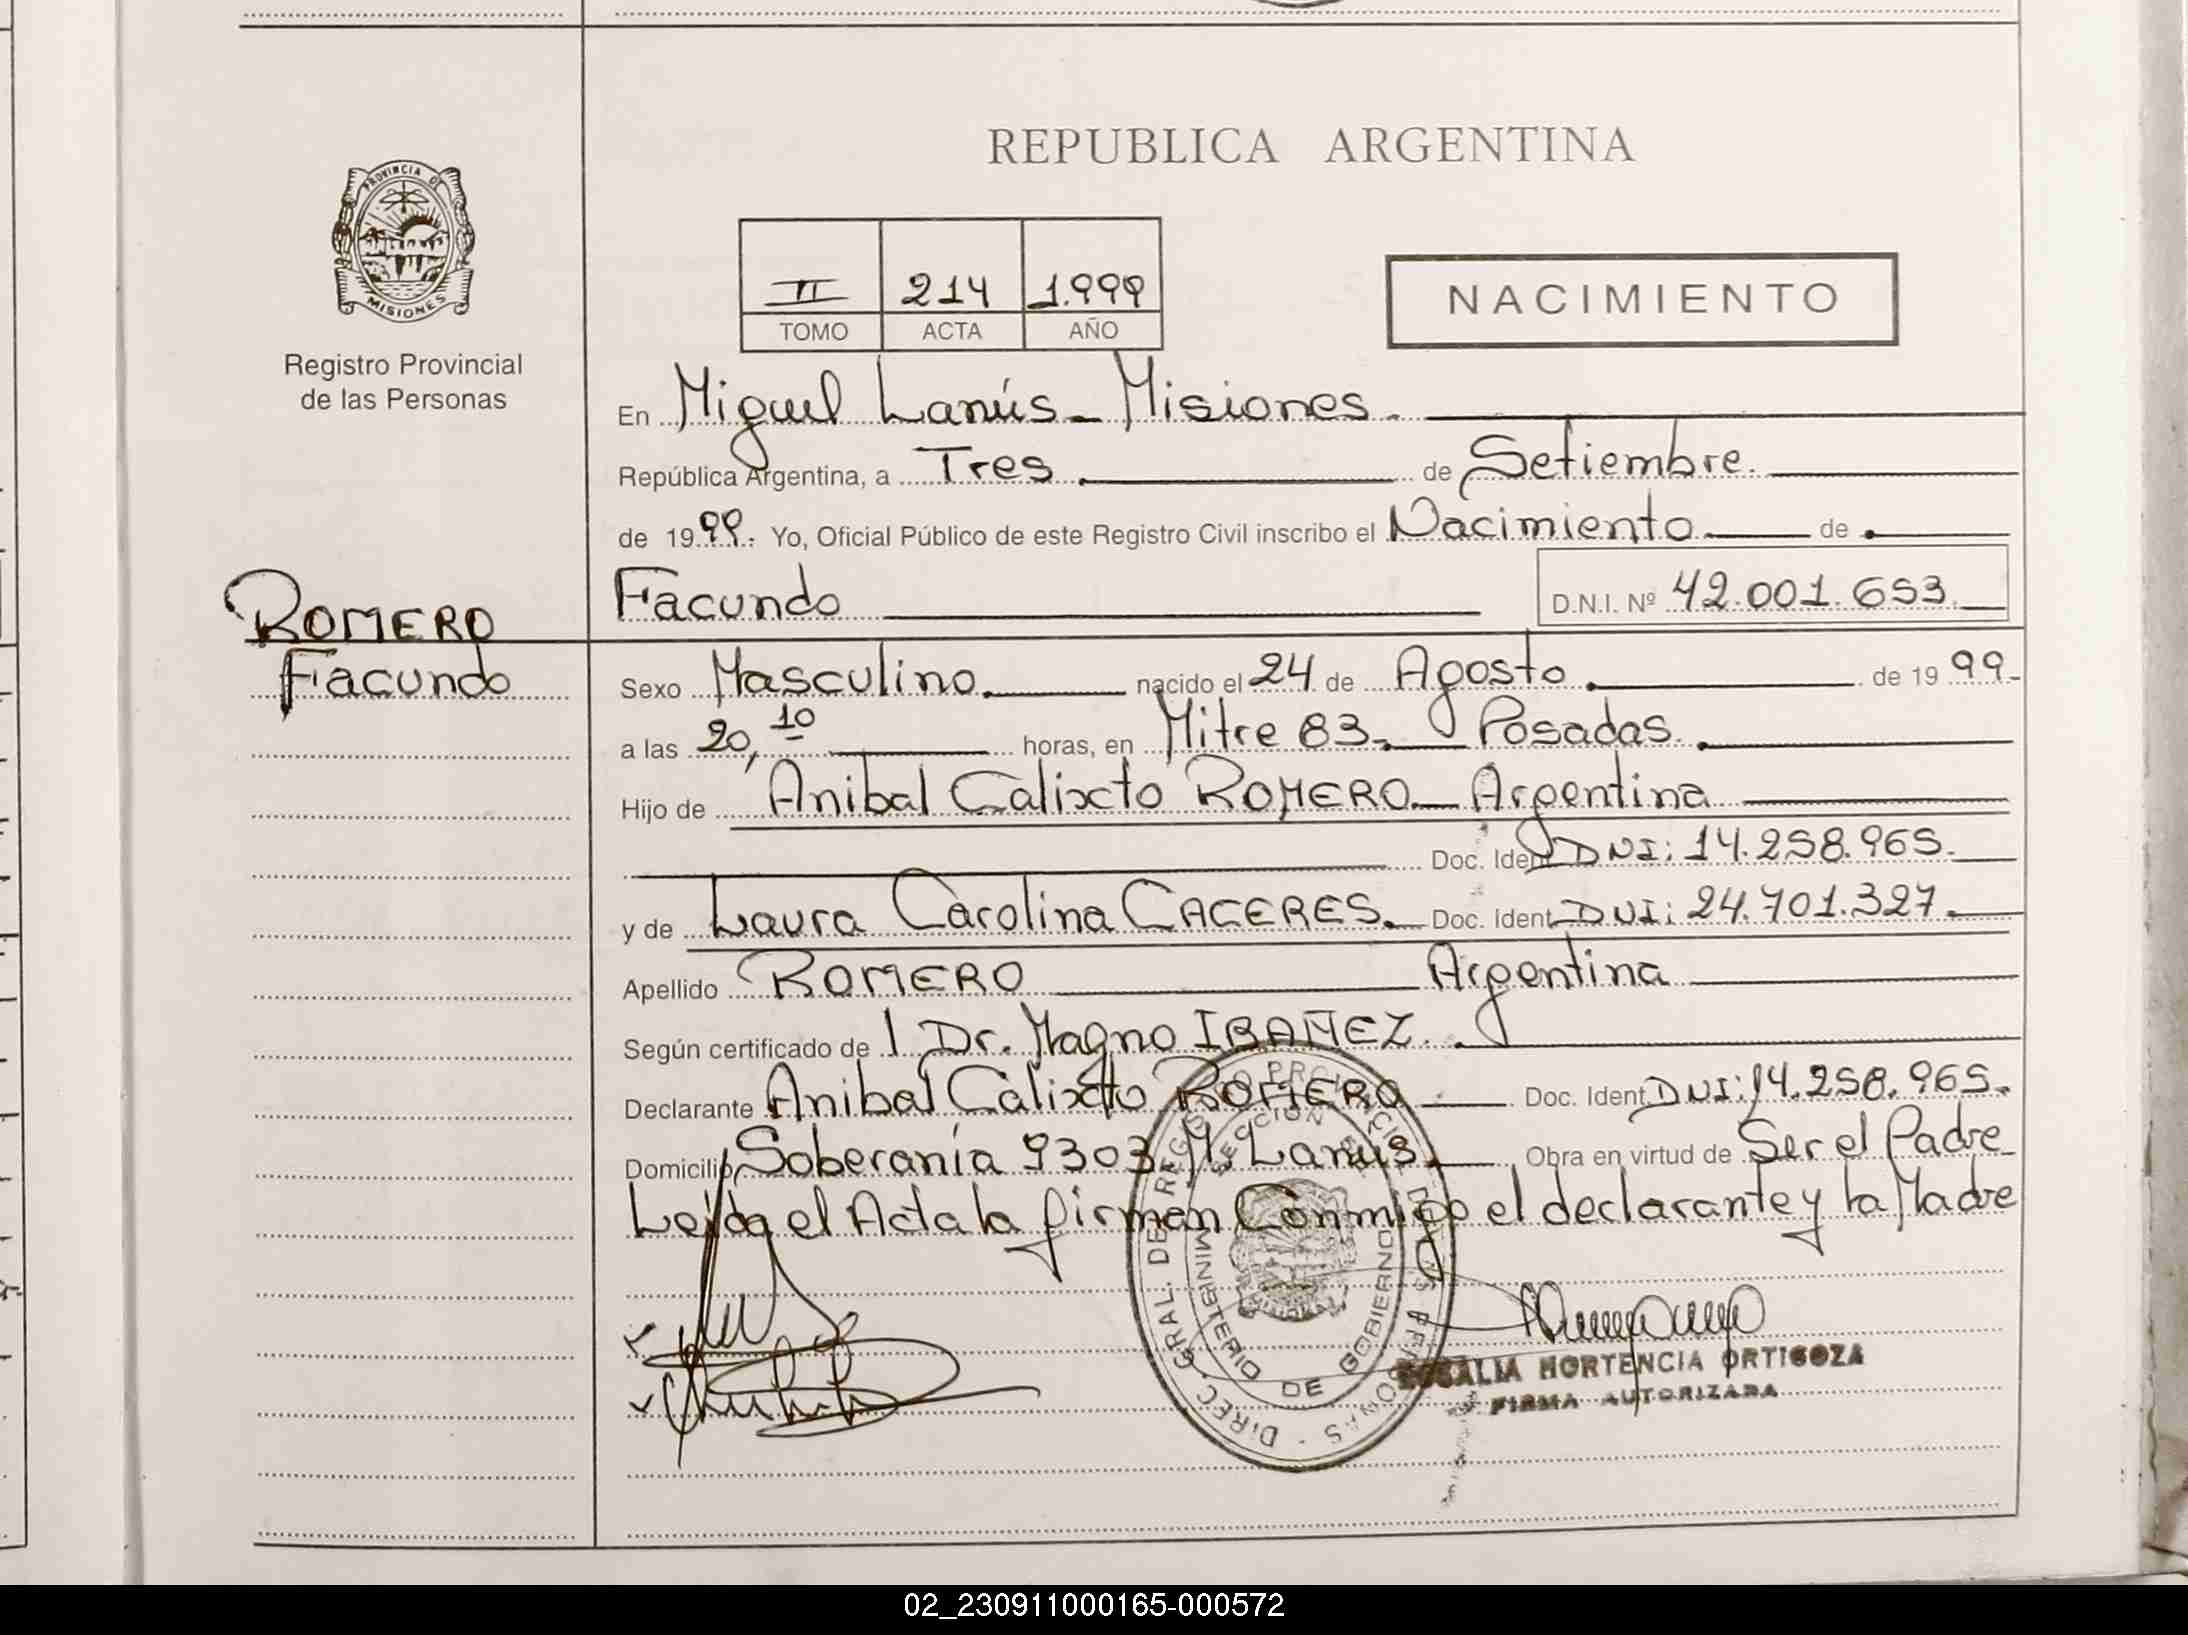 REPUBLICA ARGENTINA
PROVINCIA DE
MISIONES
Registro Provincial
de las Personas
II 214 1.999
TOMO ACTA AÑO
NACIMIENTO
En Miguel Lanús - Misiones.
República Argentina, a Tres de Setiembre.
de 1999. Yo, Oficial Público de este Registro Civil inscribo el Nacimiento de
Facundo D.N.I. Nº 42.001.653.
ROMERO
Facundo
Sexo Masculino. nacido el 24 de Agosto. de 1999.
a las 20,10 horas, en Mitre 83. Posadas.
Hijo de Anibal Calixto ROMERO Argentina
Doc. Ident DNI: 14.258.965.
y de Laura Carolina CACERES. Doc. Ident DNI: 24.701.327.
Apellido ROMERO Argentina
Según certificado de l Dr. Magno IBAÑEZ.
Declarante Anibal Calixto ROMERO Doc. Ident DNI: 14.258.965.
Domicilio Soberanía 9303 M. Lanús. Obra en virtud de Ser el Padre
Leida el Acta la firman Conmigo el declarante y la Madre
DIREC. GRAL. DE REGISTRO PROVINCIAL DE LAS PERSONAS
SECCION
MINISTERIO DE GOBIERNO
ROSALIA HORTENCIA ORTIGOZA
FIRMA AUTORIZADA
02_230911000165-000572